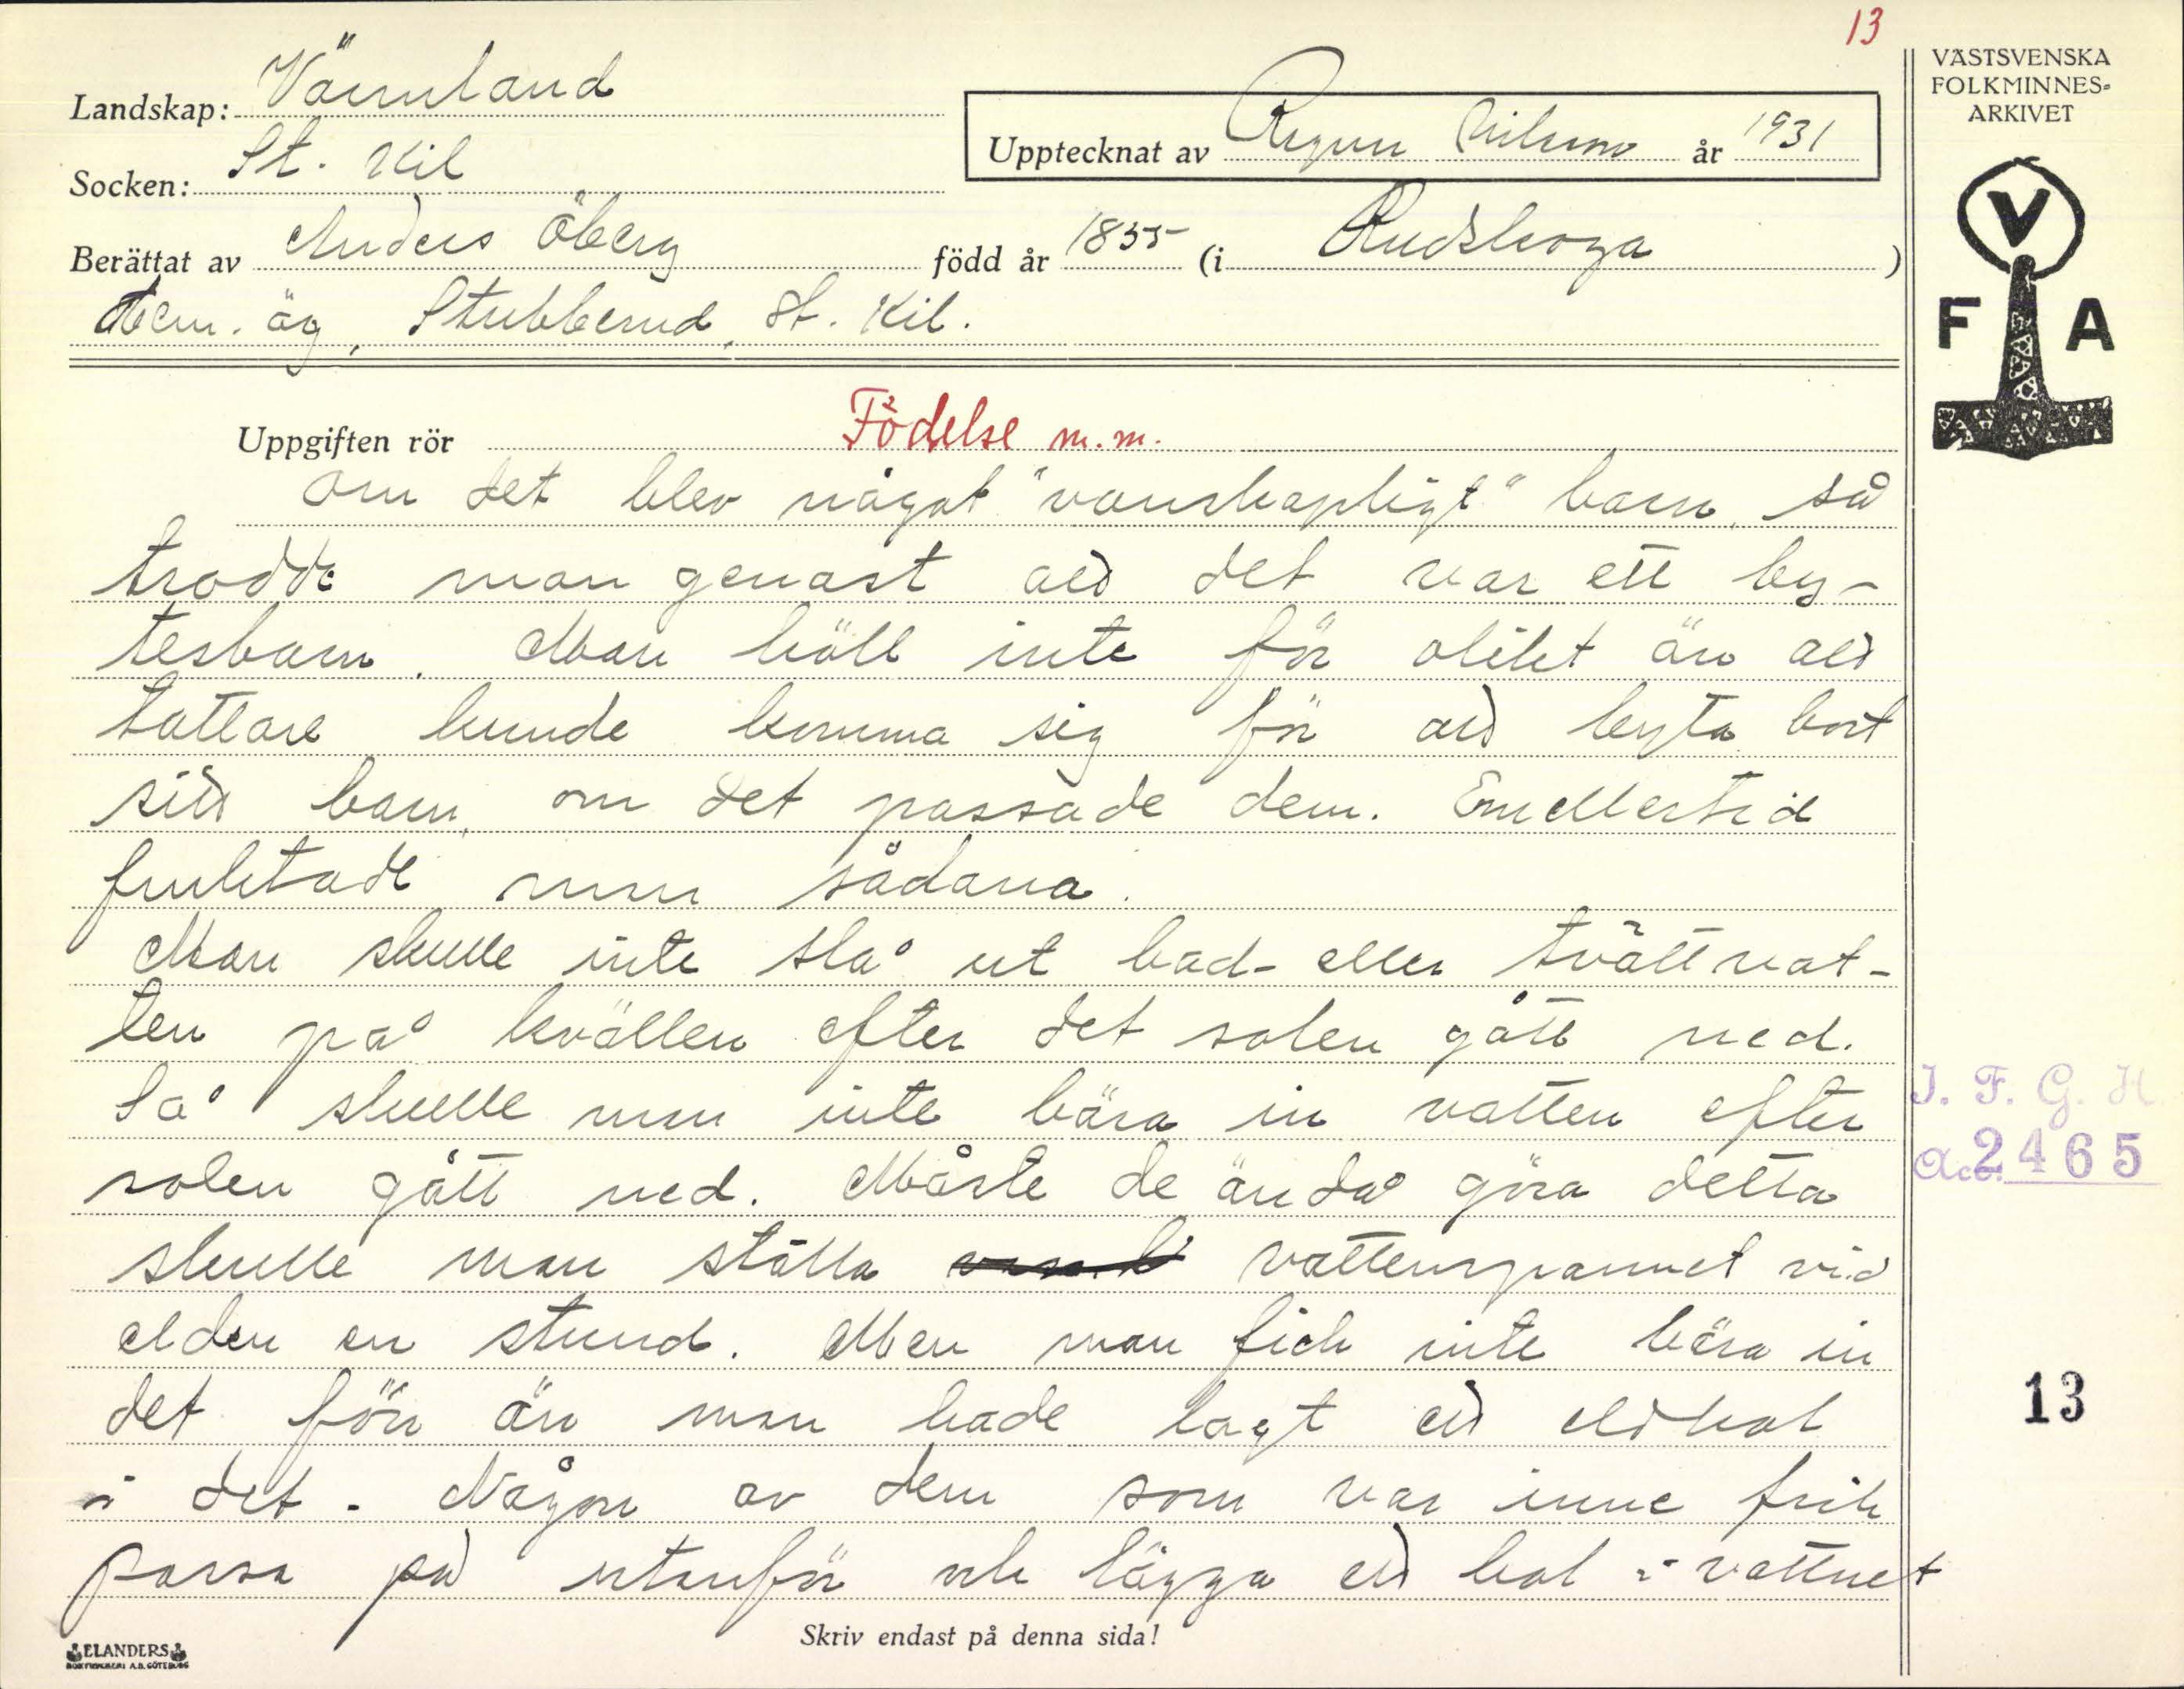 13
VÄSTSVENSKA
FOLKMINNES-
ARKIVET
Landskap: Värmland
Upptecknat av Ragnar Nilsson år 1931
Socken: St. Kil
Berättat av Anders Öberg född år 1855 (i Rudskoga)
Hem. äg, Stubberud, St. Kil.
V
F A
Uppgiften rör Födelse m.m.
Om det blev något "vanskapligt" barn, så
trodde man genast att det var ett by-
tesbarn. Man höll inte för olikt än att
tattare kunde komma sig för att byta bort
sitt barn, om det passade dem. Emellertid
fruktade man sådana.
Man skulle inte slå ut bad- eller tvättvat-
ten på kvällen efter det solen gått ned.
Så skulle man inte bära in vatten efter
solen gått ned. Måste de ändå göra detta
skulle man ställa vattenspannet vid
elden en stund. Men man fick inte bära in
det förr än man hade lagt ett eldkol
i det. Någon av dem som var inne fick
passa på utanför och lägga ett kol i vattnet
I. F. G. H.
Acc. 2465
13
Skriv endast på denna sida!
ELANDERS
BOKTRYCKERI A.B. GÖTEBORG